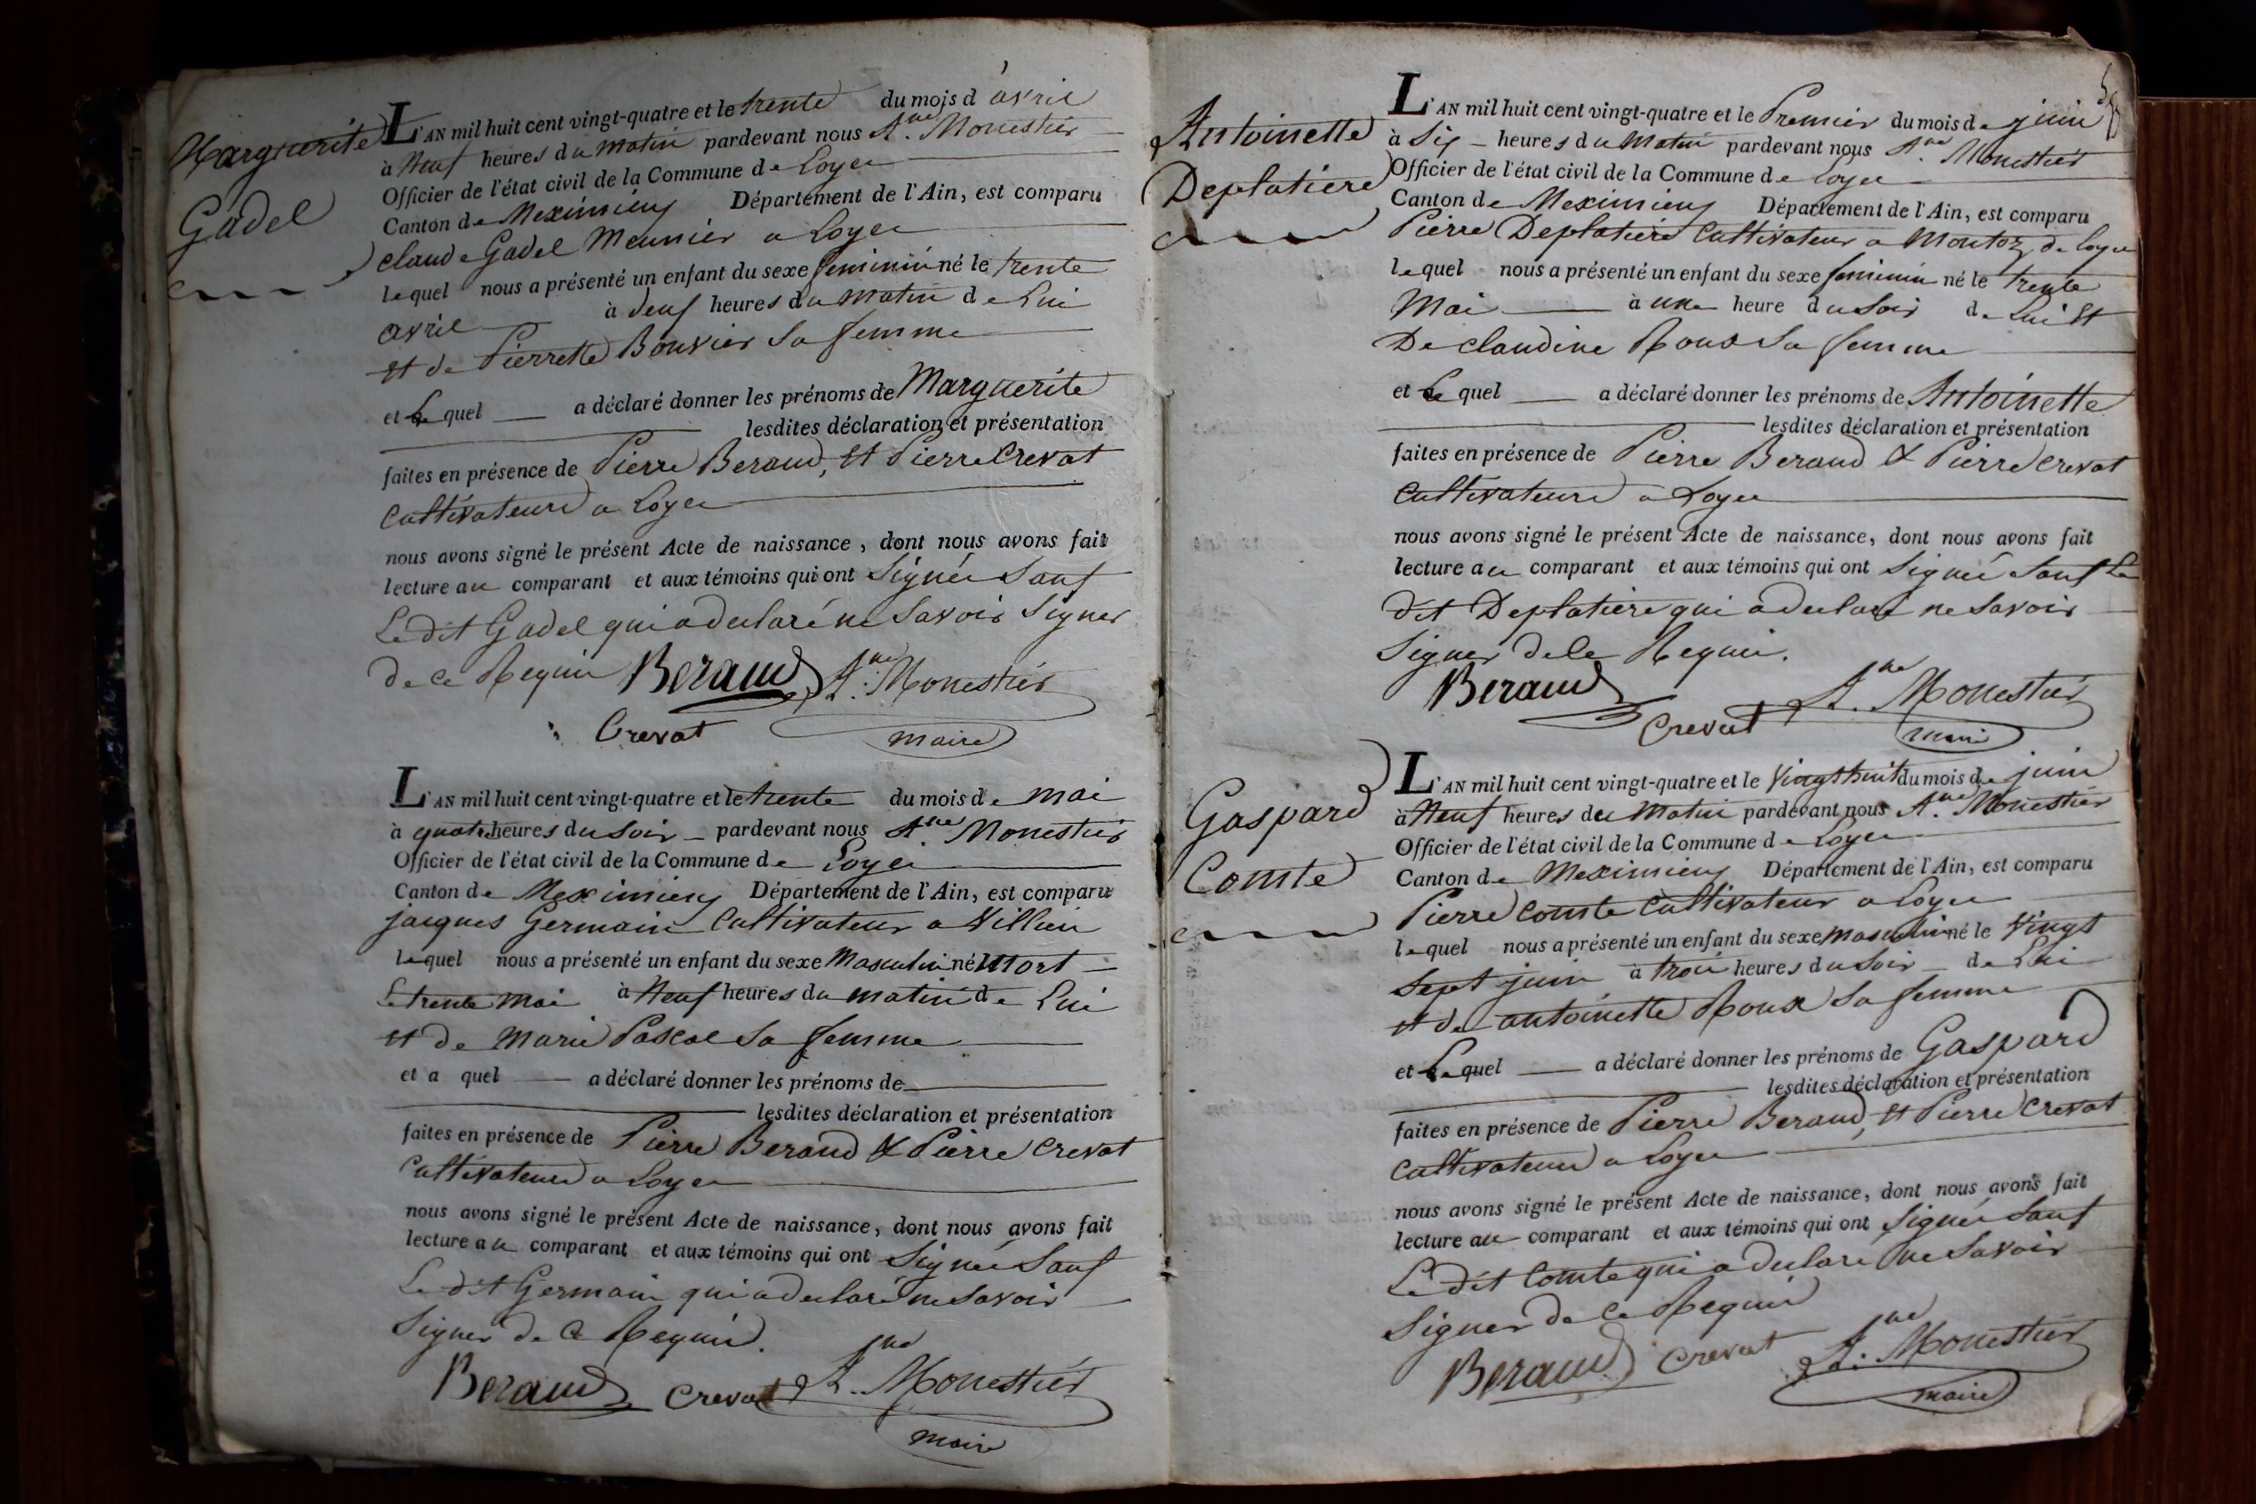 Marguerite
Gadel
L'AN mil huit cent vingt-quatre et le trente du mois d'avril
à neuf heures du matin pardevant nous A.ne Monestier
Officier de l'état civil de la Commune de Loyes
Canton de Meximieux Département de l'Ain, est comparu
claude Gadel Meunier a Loyes
lequel nous a présenté un enfant du sexe feminin né le trente
avril à deux heures du matin de Lui
et de Pierrette Bouvier Sa femme
et Le quel a déclaré donner les prénoms de Marguerite
lesdites déclaration et présentation
faites en présence de Pierre Beraud, et Pierre Crevat
Cultivateurs a Loyes
nous avons signé le présent Acte de naissance, dont nous avons fait
lecture au comparant et aux témoins qui ont Signés Sauf
Le dit Gadel qui a declaré ne Savoir Signer
de ce Requis Beraud A.ne Monestier
Crevat maire
L'AN mil huit cent vingt-quatre et le trente du mois de mai
à quatre heures du Soir pardevant nous A.ne Monestier
Officier de l'état civil de la Commune de Loyes
Canton de Meximieux Département de l'Ain, est comparu
jacques Germain Cultivateur a Villieu
lequel nous a présenté un enfant du sexe Masculin né Mort
Le trente Mai à Neuf heures du matin de Lui
et de Marie Pascal Sa femme
et a quel a déclaré donner les prénoms de
lesdites déclaration et présentation
faites en présence de Pierre Beraud & Pierre Crevat
Cultivateurs a Loyes
nous avons signé le présent Acte de naissance, dont nous avons fait
lecture au comparant et aux témoins qui ont Signés Sauf
Le dit Germain qui a declaré ne Savoir
Signer de ce Requis.
Beraud Crevat A.ne Monestier
maire
Antoinette
Deplatiere
L'AN mil huit cent vingt-quatre et le Premier du mois de juin
à Six heures du Matin pardevant nous A.ne Monestier
Officier de l'état civil de la Commune de Loyes
Canton de Meximieux Département de l'Ain, est comparu
Pierre Deplatiere Cultivateur a Montoz de Loyes
lequel nous a présenté un enfant du sexe feminin né le trente
Mai à une heure du Soir de Lui et
De Claudine Roux Sa femme
et Le quel a déclaré donner les prénoms de Antoinette
lesdites déclaration et présentation
faites en présence de Pierre Beraud & Pierre Crevat
Cultivateurs a Loyes
nous avons signé le présent Acte de naissance, dont nous avons fait
lecture au comparant et aux témoins qui ont Signés Sauf Le
dit Deplatiere qui a declaré ne Savoir
Signer de ce Requis.
Beraud A.ne Monestier
Crevat maire
Gaspard
Comte
L'AN mil huit cent vingt-quatre et le Vingt huit du mois de juin
à Neuf heures du Matin pardevant nous A.ne Monestier
Officier de l'état civil de la Commune de Loyes
Canton de Meximieux Département de l'Ain, est comparu
Pierre Comte Cultivateur a Loyes
lequel nous a présenté un enfant du sexe Masculin né le Vingt
Sept juin à trois heures du Soir de Lui
et de antoinette Roux Sa femme
et Le quel a déclaré donner les prénoms de Gaspard
lesdites déclaration et présentation
faites en présence de Pierre Beraud, et Pierre Crevat
Cultivateurs a Loyes
nous avons signé le présent Acte de naissance, dont nous avons fait
lecture au comparant et aux témoins qui ont Signés Sauf
Le dit Comte qui a declaré ne Savoir
Signer de ce Requis
Beraud Crevat A.ne Monestier
maire